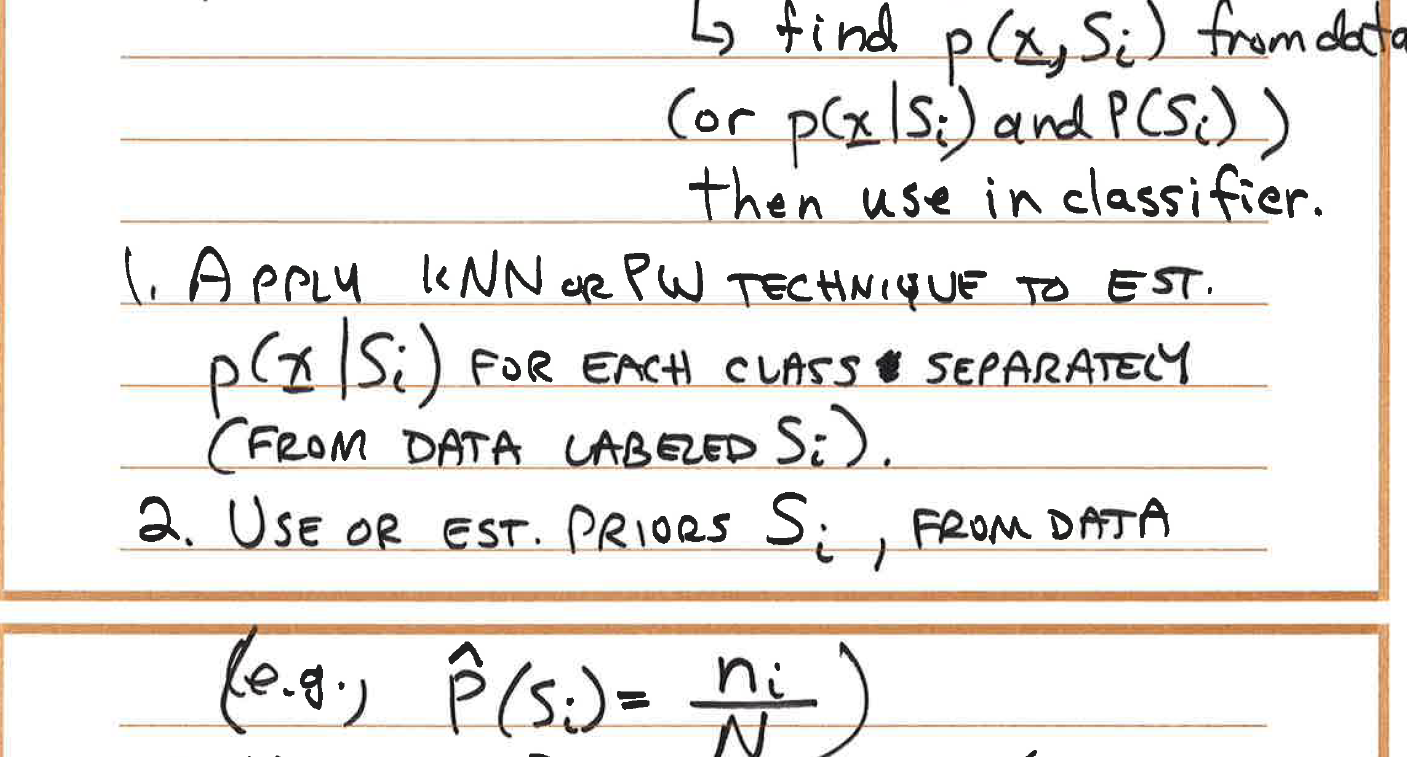 ↳ find p(x, Si) from data
(or p(x|Si) and P(Si))
then use in classifier.
1. APPLY kNN OR PW TECHNIQUE TO EST.
p(x|Si) FOR EACH CLASS SEPARATELY
(FROM DATA LABELED Si).
2. USE OR EST. PRIORS Si, FROM DATA
(e.g., P̂(Si) = ni/N)